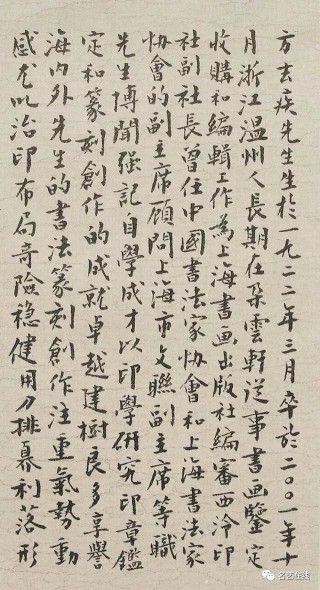 方去疾先生生於一九二二年三月卒於二〇〇一年十
月浙江溫州人長期在朵雲軒從事書画鑒定
收購和編輯工作為上海書画出版社編審西泠印
社副社長曾任中國書法家协會和上海書法家
协會的副主席顧問上海市文聯副主席等職
先生博聞强記自學成才以印學研究印章鑑
定和篆刻創作的成就卓越建樹良多享譽
海内外先生的書法篆刻創作注重氣勢動
感尤以治印布局奇險穏健用刀排奡利落形
名艺在线